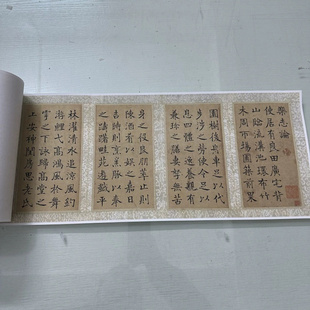 樂志論
使居有良田廣宅背
山臨流溝池環帀竹
木周布場圃築前果
園樹後舟車足以代
步涉之難使令足以
息四體之役養親有
兼珍之膳妻孥無苦
身之役良朋萃止則
陳酒肴以娛之嘉日
吉時則烹羔豚以奉
之躊躇畦苑遊戲平
林濯清水追涼風釣
游鯉弋高鴻風於舞
雩之下詠歸高堂之
上安神閨房思老氏